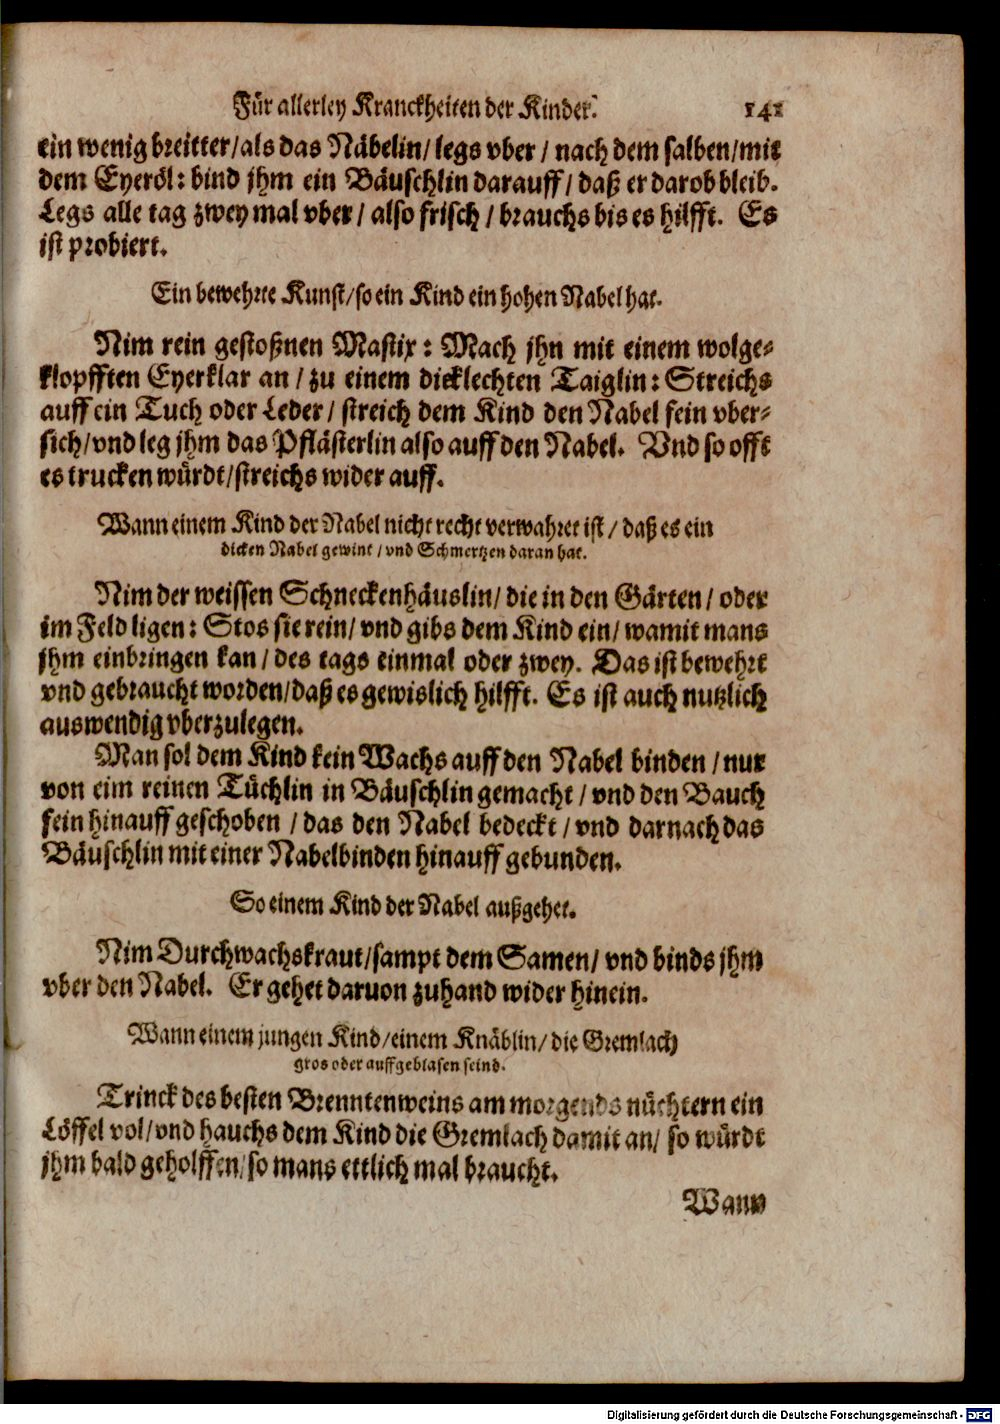 Für allerley Kranckheiten der Kinder. 141
ein wenig breitter/als das Näbelin/ legs vber / nach dem salben/mit
dem Eyeröl: bind jhm ein Bäuschlin darauff / daß er darob bleib.
Legs alle tag zwey mal vber / also frisch / brauchs bis es hilfft. Es
ist probiert.
Ein bewehrte Kunst/so ein Kind ein hohen Nabel hat.
Nim rein gestoßnen Mastix: Mach jhn mit einem wolge-
klopfften Eyerklar an / zu einem dicklechten Taiglin: Streichs
auff ein Tuch oder Leder / streich dem Kind den Nabel fein vber-
sich/vnd leg jhm das Pflästerlin also auff den Nabel. Vnd so offt
es trucken würdt/streichs wider auff.
Wann einem Kind der Nabel nicht recht verwahret ist / daß es ein
dicken Nabel gewint / vnd Schmertzen daran hat.
Nim der weissen Schneckenhäuslin/ die in den Gärten / oder
im Feld ligen: Stos sie rein/ vnd gibs dem Kind ein/ wamit mans
jhm einbringen kan / des tags einmal oder zwey. Das ist bewehrt
vnd gebraucht worden/daß es gewislich hilfft. Es ist auch nutzlich
auswendig vberzulegen.
Man sol dem Kind kein Wachs auff den Nabel binden / nur
von eim reinen Tüchlin in Bäuschlin gemacht / vnd den Bauch
fein hinauff geschoben / das den Nabel bedeckt / vnd darnach das
Bäuschlin mit einer Nabelbinden hinauff gebunden.
So einem Kind der Nabel außgehet.
Nim Durchwachskraut/sampt dem Samen/ vnd binds jhm
vber den Nabel. Er gehet daruon zuhand wider hinein.
Wann einem jungen Kind/einem Knäblin/ die Gremlach
gros oder auffgeblasen seind.
Trinck des besten Brenntenweins am morgends nüchtern ein
Löffel vol/vnd hauchs dem Kind die Gremlach damit an/ so würdt
jhm bald geholffen/so mans ettlich mal braucht.
Wann
Digitalisierung gefördert durch die Deutsche Forschungsgemeinschaft - DFG